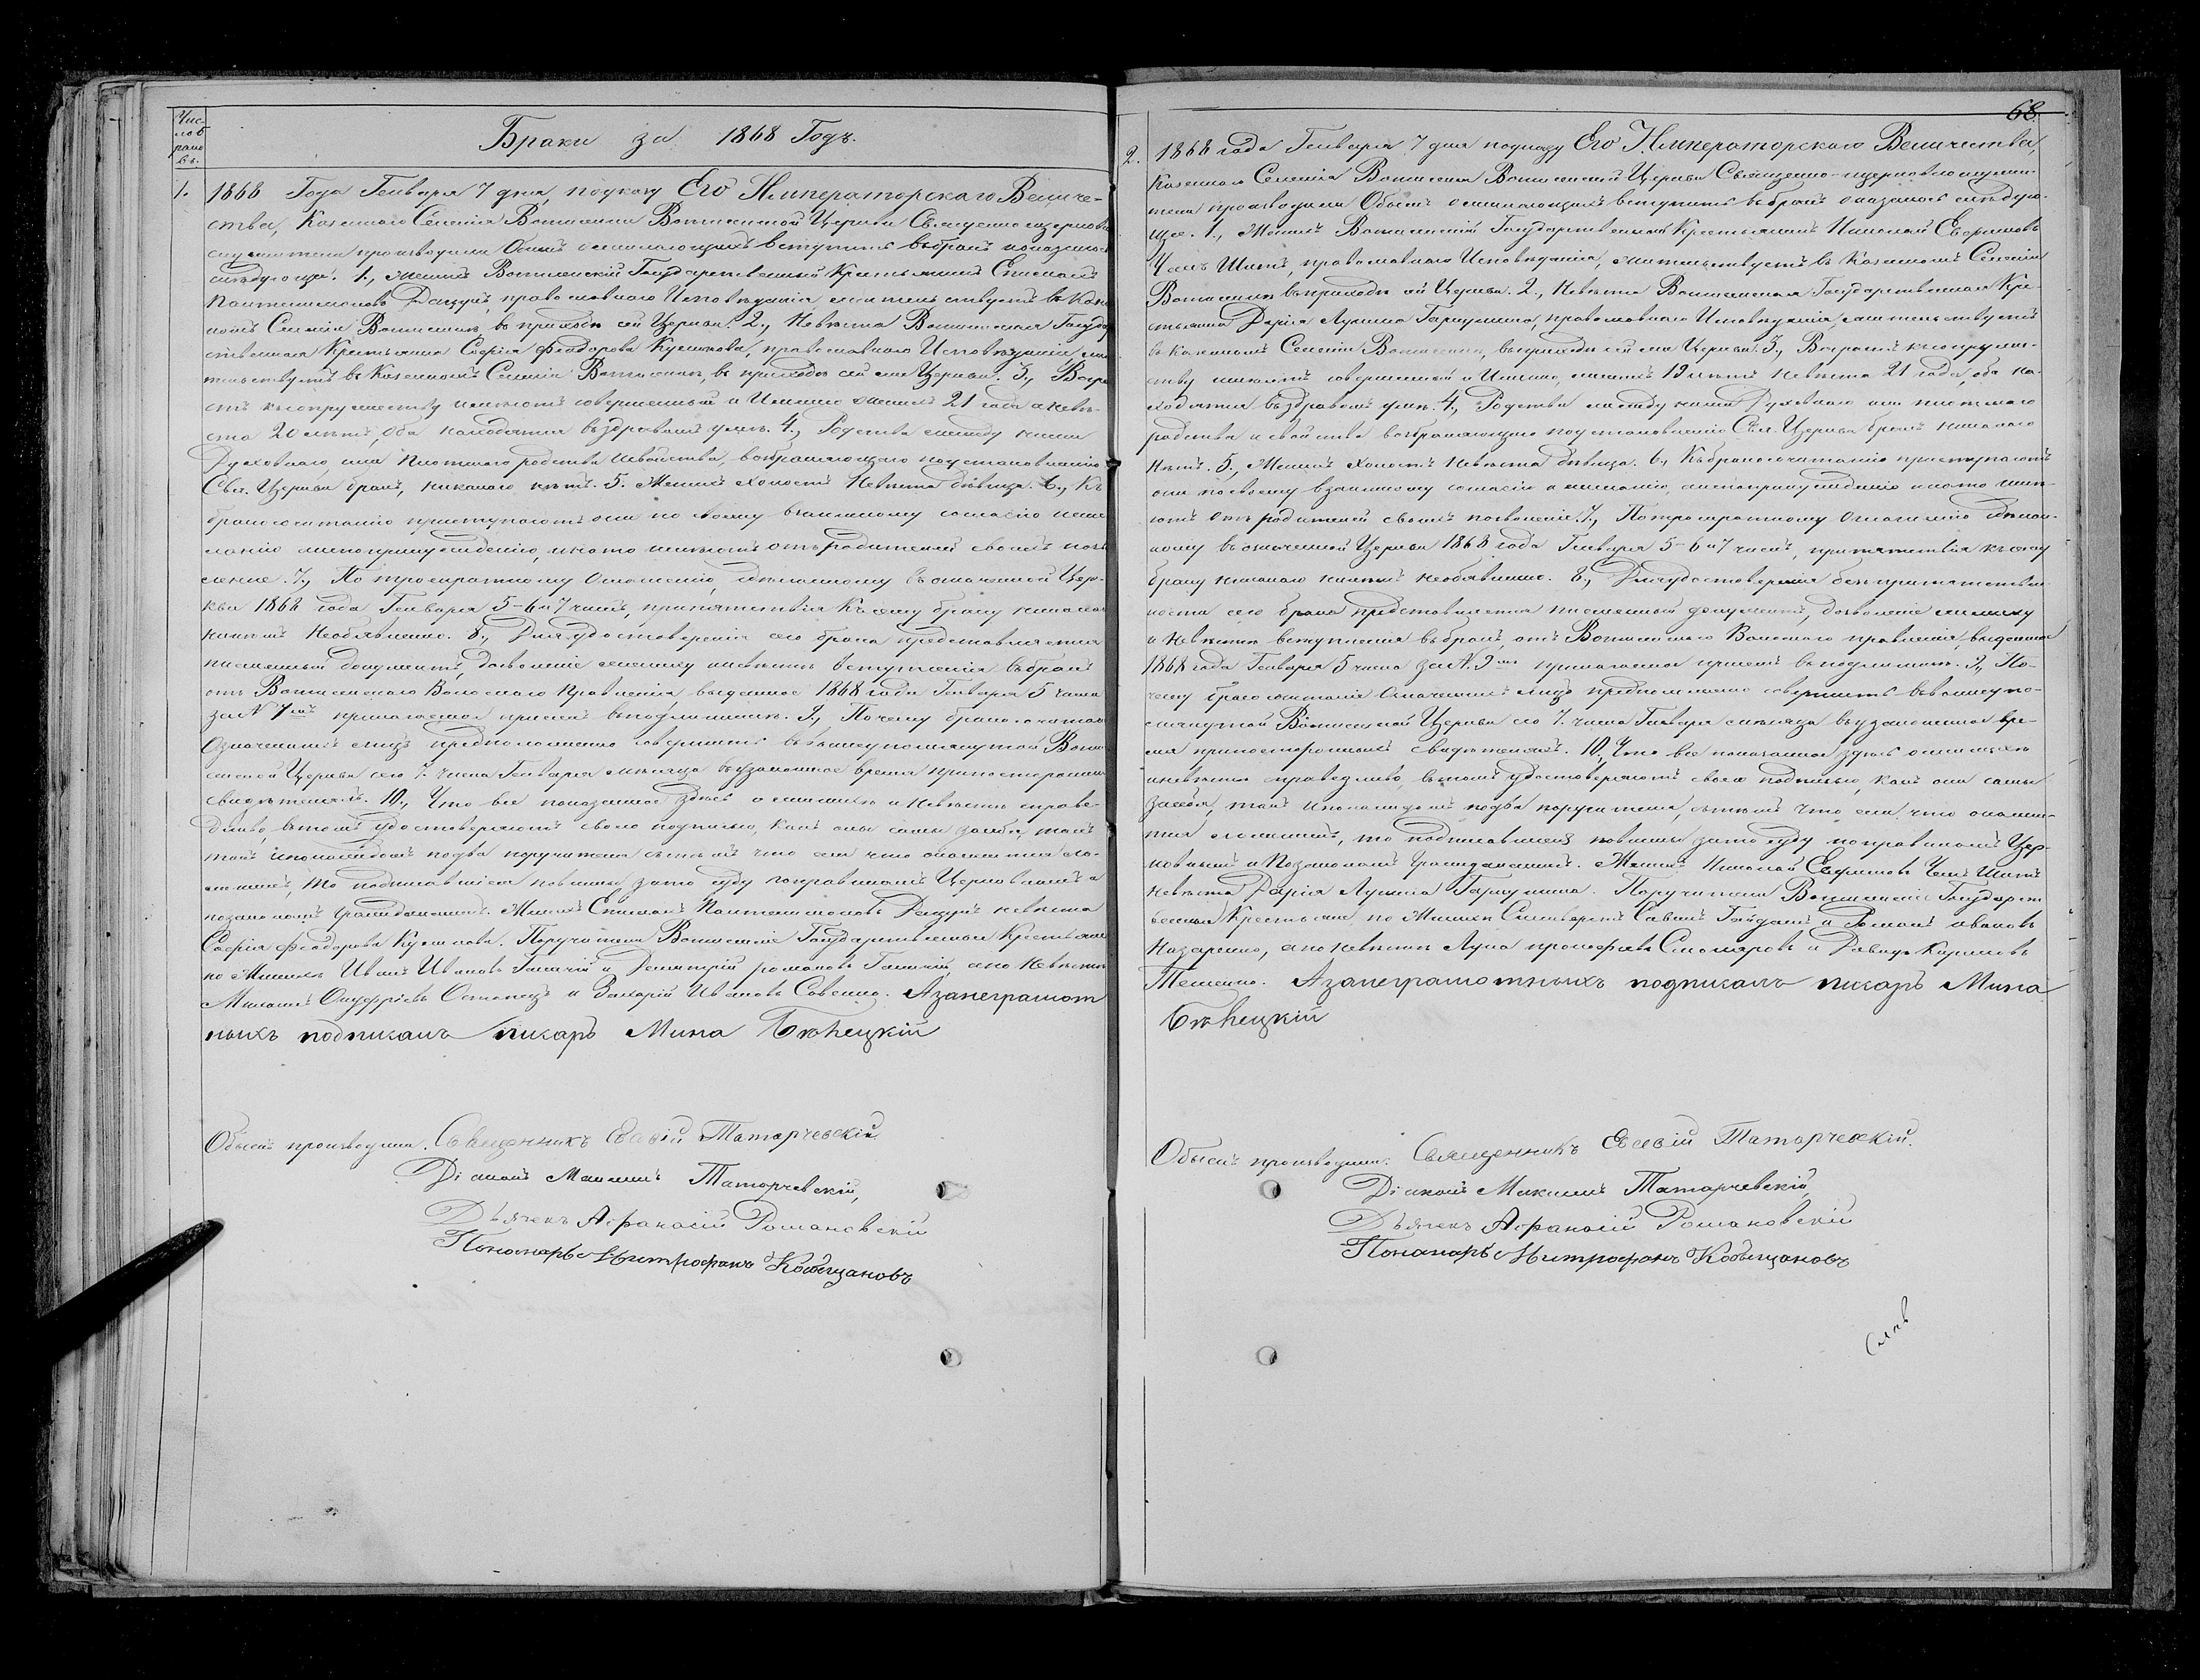 Чис-
ло б
рако
въ.
Браки за 1868 Годъ.
1.
1868 Года Генваря 7 дня, по указу Его Императорскаго Величе-
ства, Казеннаго Селенія Церкви Священно церковно
служители производили Обыскъ о желающихъ вступить въ бракъ показалось
слѣдующее. 1., Женихъ Государственный Крестьянинъ
Пантелимоновъ православнаго Исповѣданія жительствуетъ въ Казен
номъ Селеніи въ приходѣ сей Церкви. 2., Невѣста Государ
ственная Крестьянка Софія Феодорова православнаго Исповѣданія жи
тельствуетъ въ Казенномъ Селеніи въ приходѣ сей же Церкви. 3., Возра
стъ къ супружеству имѣютъ совершенный и Именно женихъ 21 года а невѣ-
ста 20 лѣтъ, Оба находятся въ здравомъ умѣ. 4., Родства между ними
Духовнаго, или Плотскаго родства и свойства, возбраняющаго по установленію
Свя. Церкви бракъ, никакого нѣтъ. 5. Женихъ холостъ Невѣста дѣвица. 6., Къ
бракосочитанію приступаютъ они по своему взаимному согласію и же
ланію а не по принужденію, и на то имѣютъ отъ родителей своихъ позв
оленіе. 7., По троекратному Оглашенію, дѣланному въ означенной Цер-
кви 1868 года Генваря 5-6 и 7 числъ, препятствія къ сему браку никакого
никѣмъ необъявлено. 8., Для удостовѣренія сего брака представляется
писменный документъ, дозволеніе жениху и невѣстѣ вступленія въ бракъ
отъ Волоснаго Правленія, выданное 1868 года Генваря 5 числа
за N 7мъ прилагаемое присемъ въ подлинникѣ. 9., Почему бракосочитаніе
Означенныхъ лицъ предположено совершить въ вышеупомянутой
Церкви сего 7. числа Генваря мѣсяца въ узаконенное время при постороннихъ
свидѣтеляхъ. 10., Что все показанное здѣсь о женихѣ и Невѣстѣ справе-
дливо, въ томъ удостовѣряютъ своею подписью, какъ они сами за себя, такъ
такъ и по каждомъ по два поручителя съ тѣмъ что если что окажется ло-
жнымъ, то подписавшіеся повинны за то суду по правиламъ Церковнымъ и
по законамъ Гражданскимъ. Женихъ Пантелимоновъ невѣста
Софія Феодорова Поручители Государственные Крестьяне
по Женихѣ Иванъ Ивановъ и романовъ а по Невѣстѣ
и Захарій Ивановъ Савенко. А за неграмот
ныхъ подписалъ писарь Мина Бѣнецкій
Обыскъ производили: Священникъ Татарчевскій
Діаконъ Максимъ Татарчевскій,
Дьячекъ Афанасій Романовскій
Пономарь Митрофанъ Кобыщановъ
68.
2.
1868 года Генваря 7 дня по указу Его Императорскаго Величества,
Казеннаго Селенія Церкви Священно-церковнослужи-
тели производили Обыскъ о желающихъ вступить въ бракъ оказалось слѣдую-
щее. 1., Женихъ Государственный Крестьянинъ Николай Евфимовъ
православнаго Исповѣданія, жительствуетъ въ Казенномъ Селеніи
въ приходѣ сей Церкви. 2., Невѣста Государственная Кре-
стьянка Дарія Лукина православнаго Исповѣданія жительствуетъ
въ Казенномъ Селеніи въ приходѣ сей же Церкви. 3., Возрастъ къ супруже-
ству имѣютъ совершенный и Именно, женихъ 19 лѣтъ Невѣста 21 года, оба на-
ходятся въ здравомъ умѣ. 4., Родства между ними Духовнаго или плотскаго
родства и свойства возбраняющаго по установленію Свя. Церкви бракъ никакого
нѣтъ. 5., Женихъ Холостъ Невѣста дѣвица. 6., Къ бракосочитанію приступаютъ
они по своему взаимному согласію и желанію, а не по принужденію и на то имѣ-
ютъ отъ родителей своихъ позволеніе. 7., По троекратному Оглашенію дѣлан-
ному въ означенной Церкви 1868 года Генваря 5-6 и 7 числъ, препятствія къ сему
браку никакого никѣмъ необъявлено. 8., Для удостовѣренія безпрепятствен
ности сего брака представляется писменный документъ, дозволеніе жениху
и Невѣстѣ вступленія въ бракъ, отъ Волоснаго правленія, выданное
1868 года Генваря 5 числа за N. 9мъ прилагаемое присемъ въ подлинникѣ. 9., По-
чему бракосочитаніе означенныхъ лицъ предположено совершить въ вышеупо-
мянутой Церкви сего 7. числа Генваря мѣсяца въ узаконенное вре-
мя при постороннихъ свидѣтеляхъ. 10, Что все показанное здѣсь о женихѣ
и невѣстѣ справедливо, въ томъ удостовѣряютъ своею подписью, какъ они сами
за себя, такъ и по каждомъ по два поручителя, съ тѣмъ что если что окажет-
ся ложнымъ, то подписавшіеся повинны за то суду по правиламъ Цер-
ковнымъ и По законамъ Гражданскимъ. Женихъ Николай Евфимовъ
невѣста Дарія Лукина Поручители Государст
венные Крестьяне по Женихѣ и Романъ ивановъ
Назаренко, а по невѣстѣ Лука и Давидъ Кириловъ
А за неграмотныхъ подписалъ писарь Мина
Бѣнецкій
Обыскъ производили: Священникъ Татарчевскій.
Діаконъ Максимъ Татарчевскій,
Дьячекъ Афанасій Романовскій
Пономарь Митрофанъ Кобыщановъ